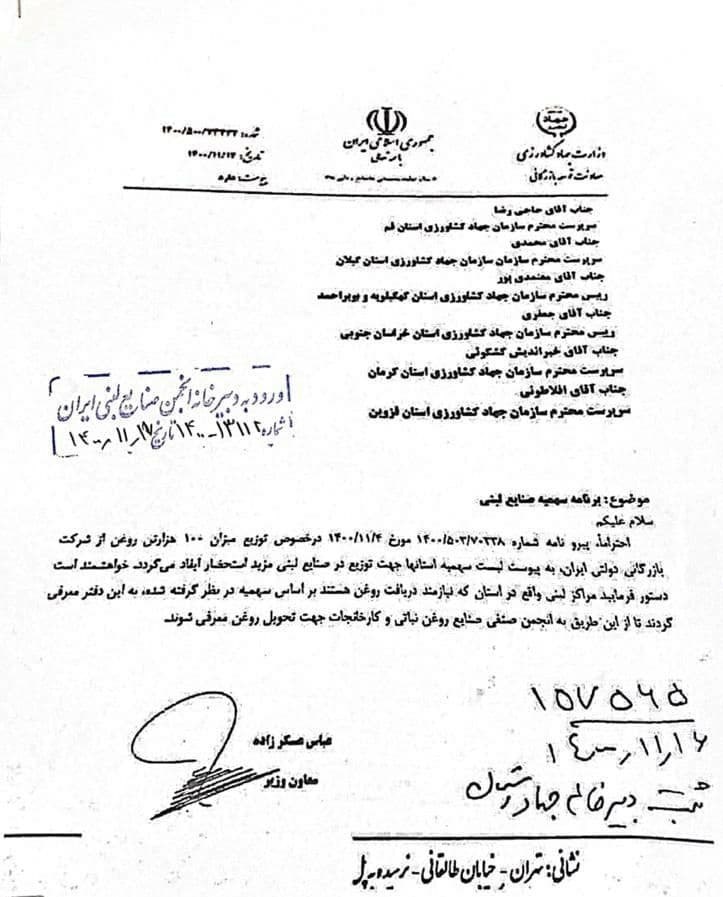 جهاد
وزارت جهاد کشاورزی
معاونت توسعه بازرگانی
جمهوری اسلامی ایران
باسمه تعالی
شماره: ۱۴۰۰/۵۰۰/۷۳۴۳۲
تاریخ: ۱۴۰۰/۱۱/۱۴
پیوست: دارد
جناب آقای حاجی رضا
سرپرست محترم سازمان جهاد کشاورزی استان قم
جناب آقای محمدی
سرپرست محترم سازمان سازمان جهاد کشاورزی استان گیلان
جناب آقای معتمدی پور
رییس محترم سازمان جهاد کشاورزی استان کهگیلویه و بویراحمد
جناب آقای جعفری
رییس محترم سازمان جهاد کشاورزی استان خراسان جنوبی
جناب آقای خیراندیش کشکوئی
سرپرست محترم سازمان جهاد کشاورزی استان کرمان
جناب آقای افلاطونی
سرپرست محترم سازمان جهاد کشاورزی استان قزوین
ورود به دبیرخانه انجمن صنایع لبنی ایران
شماره ۱۳۱۱۲-۱۴۰۰ تاریخ ۱۴۰۰,۱۱,۱۷
موضوع: برنامه سهمیه صنایع لبنی
سلام علیکم
احتراماً، پیرو نامه شماره ۱۴۰۰/۵۰۳/۷۰۳۳۸ مورخ ۱۴۰۰/۱۱/۴ درخصوص توزیع میزان ۱۰۰ هزارتن روغن از شرکت
بازرگانی دولتی ایران، به پیوست لیست سهمیه استانها جهت توزیع در صنایع لبنی مزید استحضار ایفاد می‌گردد. خواهشمند است
دستور فرمایید مراکز لبنی واقع در استان که نیازمند دریافت روغن هستند بر اساس سهمیه در نظر گرفته شده، به این دفتر معرفی
گردند تا از این طریق به انجمن صنفی صنایع روغن نباتی و کارخانجات جهت تحویل روغن معرفی شوند.
عباس عسکرزاده
معاون وزیر
۱۵۷۵۶۵
ثبت دبیرخانه جهاد
نشانی: تهران- خیابان طالقانی- نرسیده به پل